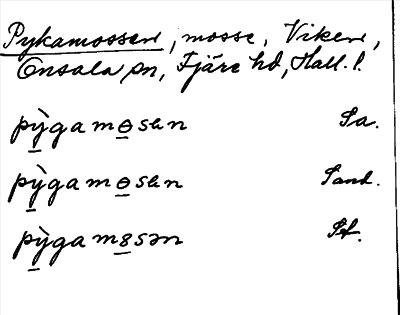 Pykamossen, mosse, Viken,
Onsala sn, Fjäre hd, Hall. l.
pỳgamosən Sa.
pỳgamosən Sand.
pỳgam8sən St.